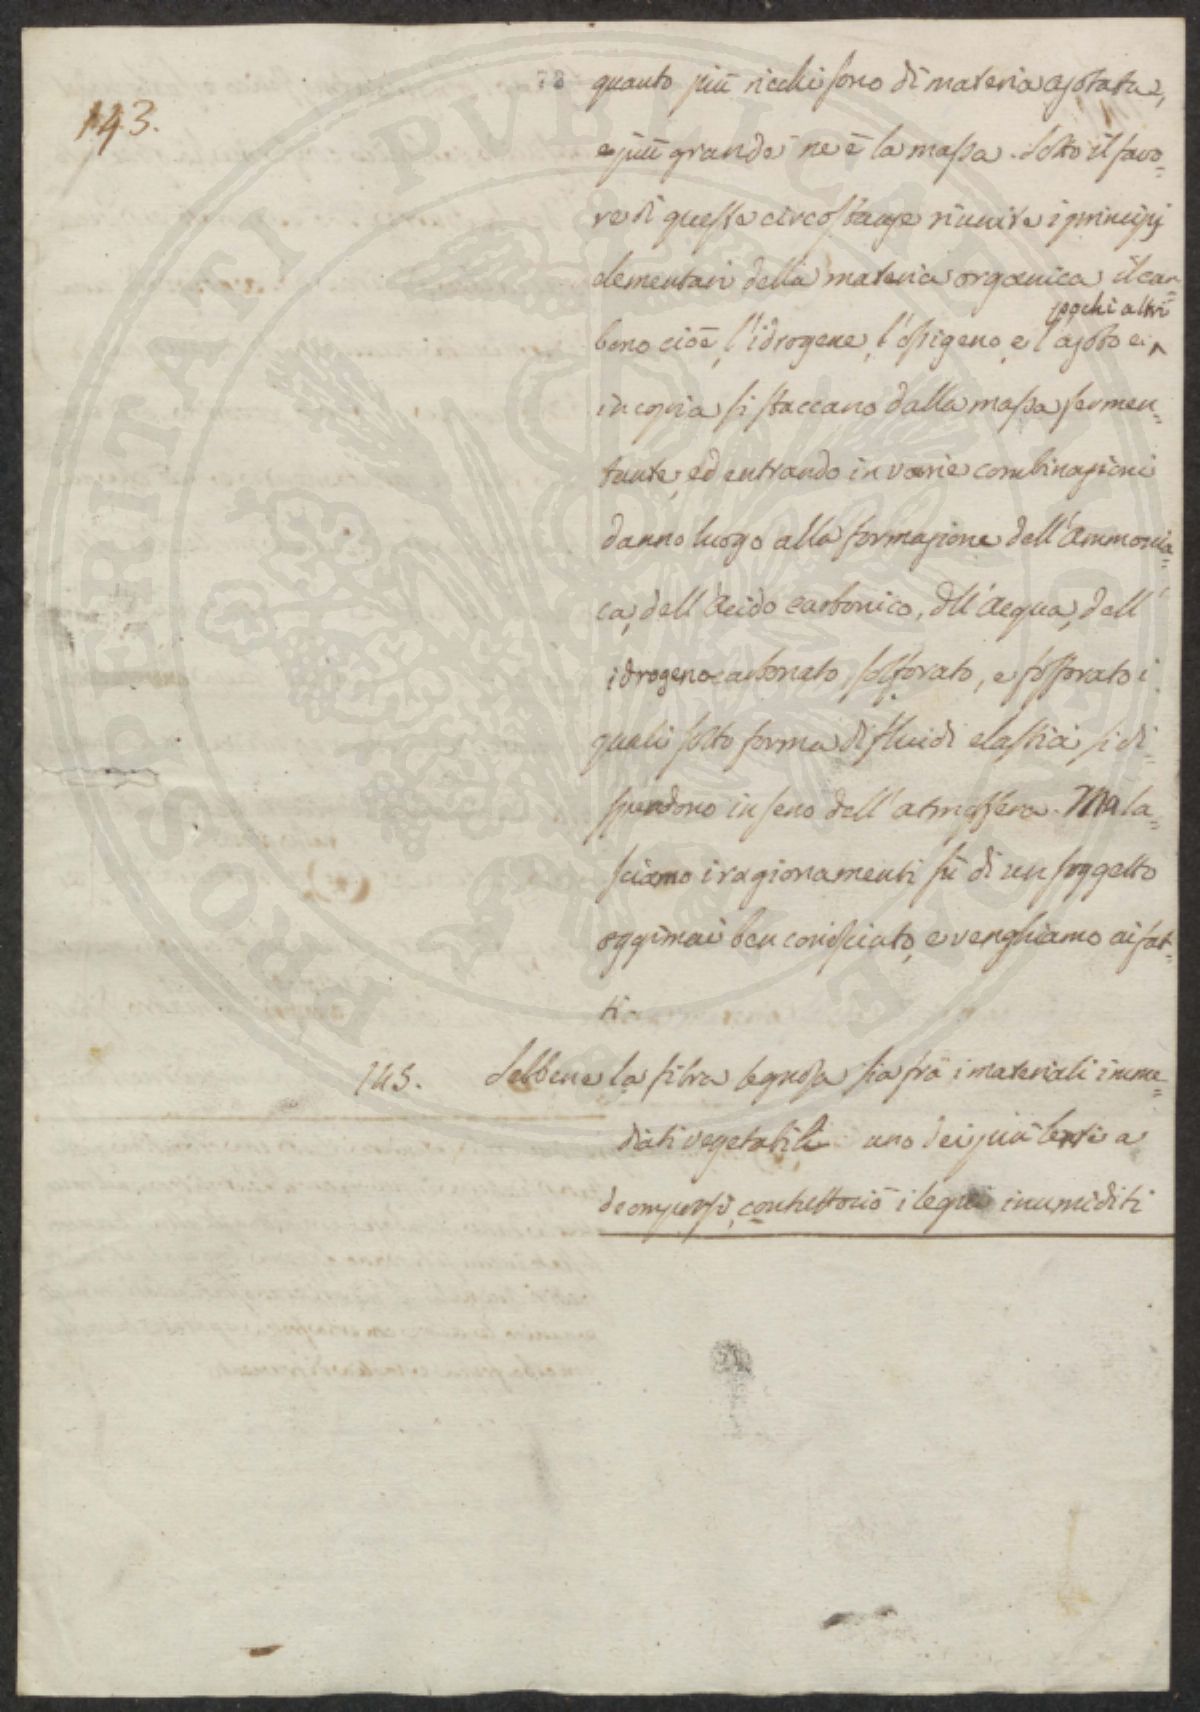 143.
quanto più ricchi sono di materia azotata,
e più grande ne è la massa. Sotto il favo=
re di queste circostanze riunite i principj
elementari della materia organica il car=
pochi altri
bono cioè, l'idrogene, l'ossigeno, e l'azoto e
in copia si staccano dalla massa fermen=
tante, ed entrando in varie combinazioni
danno luogo alla formazione dell'Ammonia=
ca, dell'Acido carbonico, dll'Acqua, dell'
idrogeno carbonato, solforato, e fosforato i
quali sotto forma di fluidi elastici si di=
sperdono in seno dell'atmosfera. Ma la=
sciamo i ragionamenti sù di un soggetto
oggimai ben conosciuto, e venghiamo ai fat=
ti.
143. Sebbene la fibra legnosa sia frà i materiali imme=
diati vegetabili uno dei più lenti a
decomporsi, contuttociò i legni inumiditi
PROSPERITATI PVBLICAE AVGENDAE